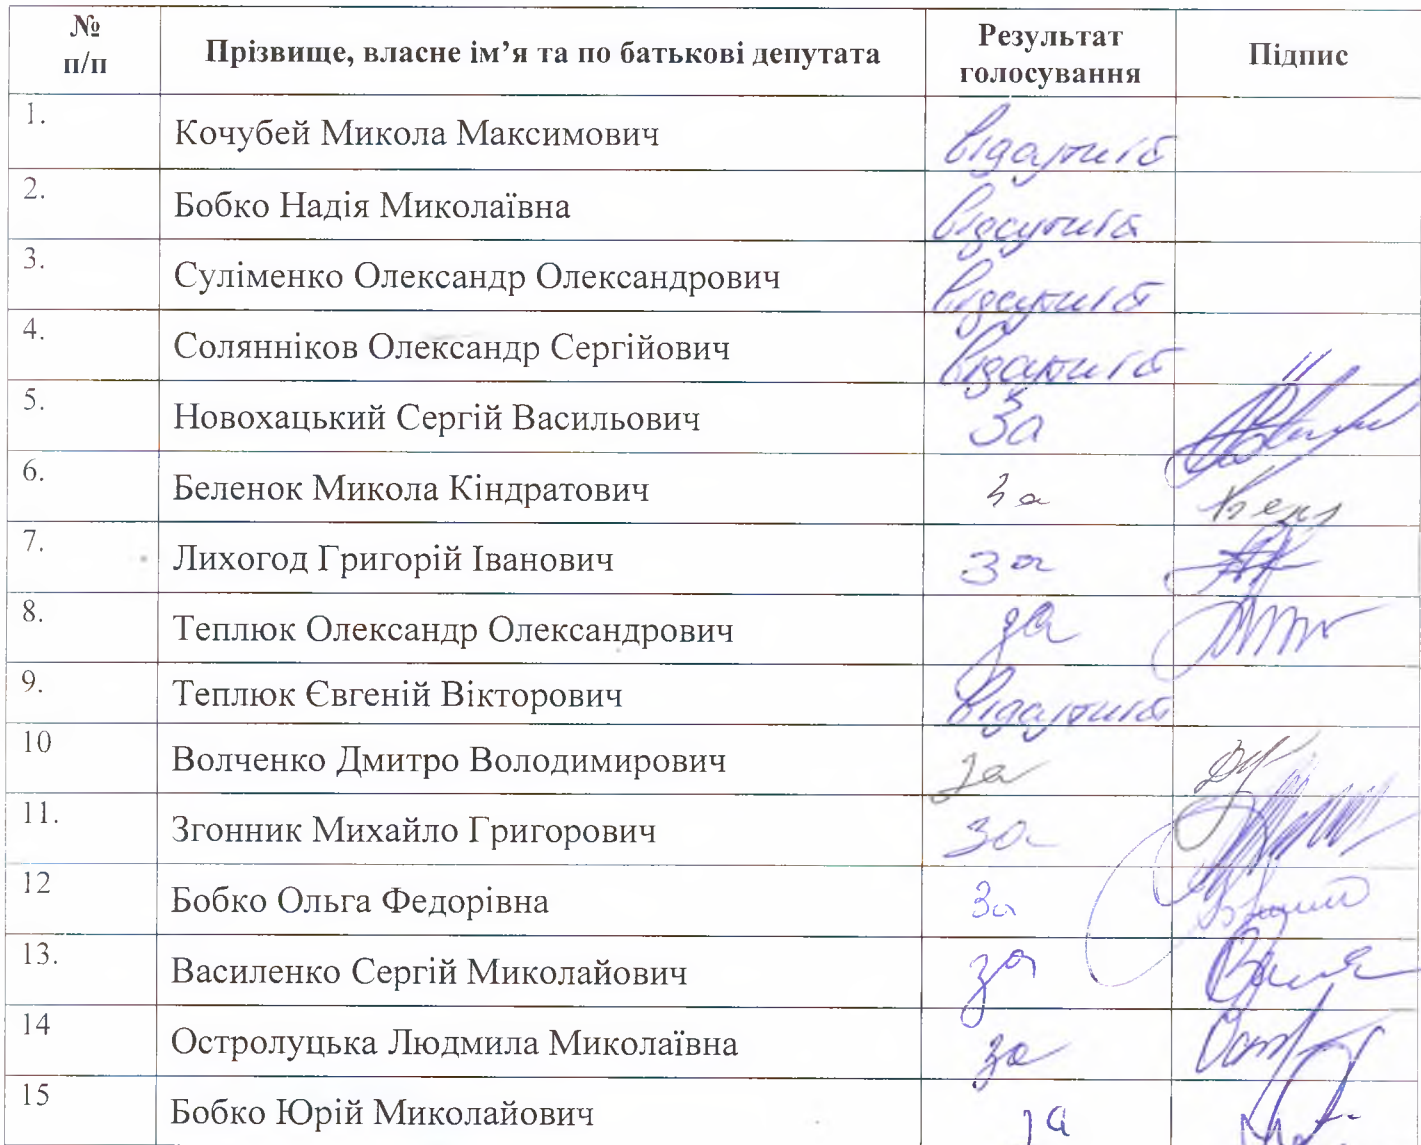 № п/п Прізвище, власне ім’я та по батькові депутата Результат голосування Підпис
1. Кочубей Микола Максимович відсутній
2. Бобко Надія Миколаївна відсутня
3. Суліменко Олександр Олександрович відсутній
4. Солянніков Олександр Сергійович відсутній
5. Новохацький Сергій Васильович За
6. Беленок Микола Кіндратович За
7. Лихогод Григорій Іванович За
8. Теплюк Олександр Олександрович за
9. Теплюк Євгеній Вікторович відсутній
10 Волченко Дмитро Володимирович за
11. Згонник Михайло Григорович за
12 Бобко Ольга Федорівна За
13. Василенко Сергій Миколайович за
14 Остролуцька Людмила Миколаївна за
15 Бобко Юрій Миколайович за